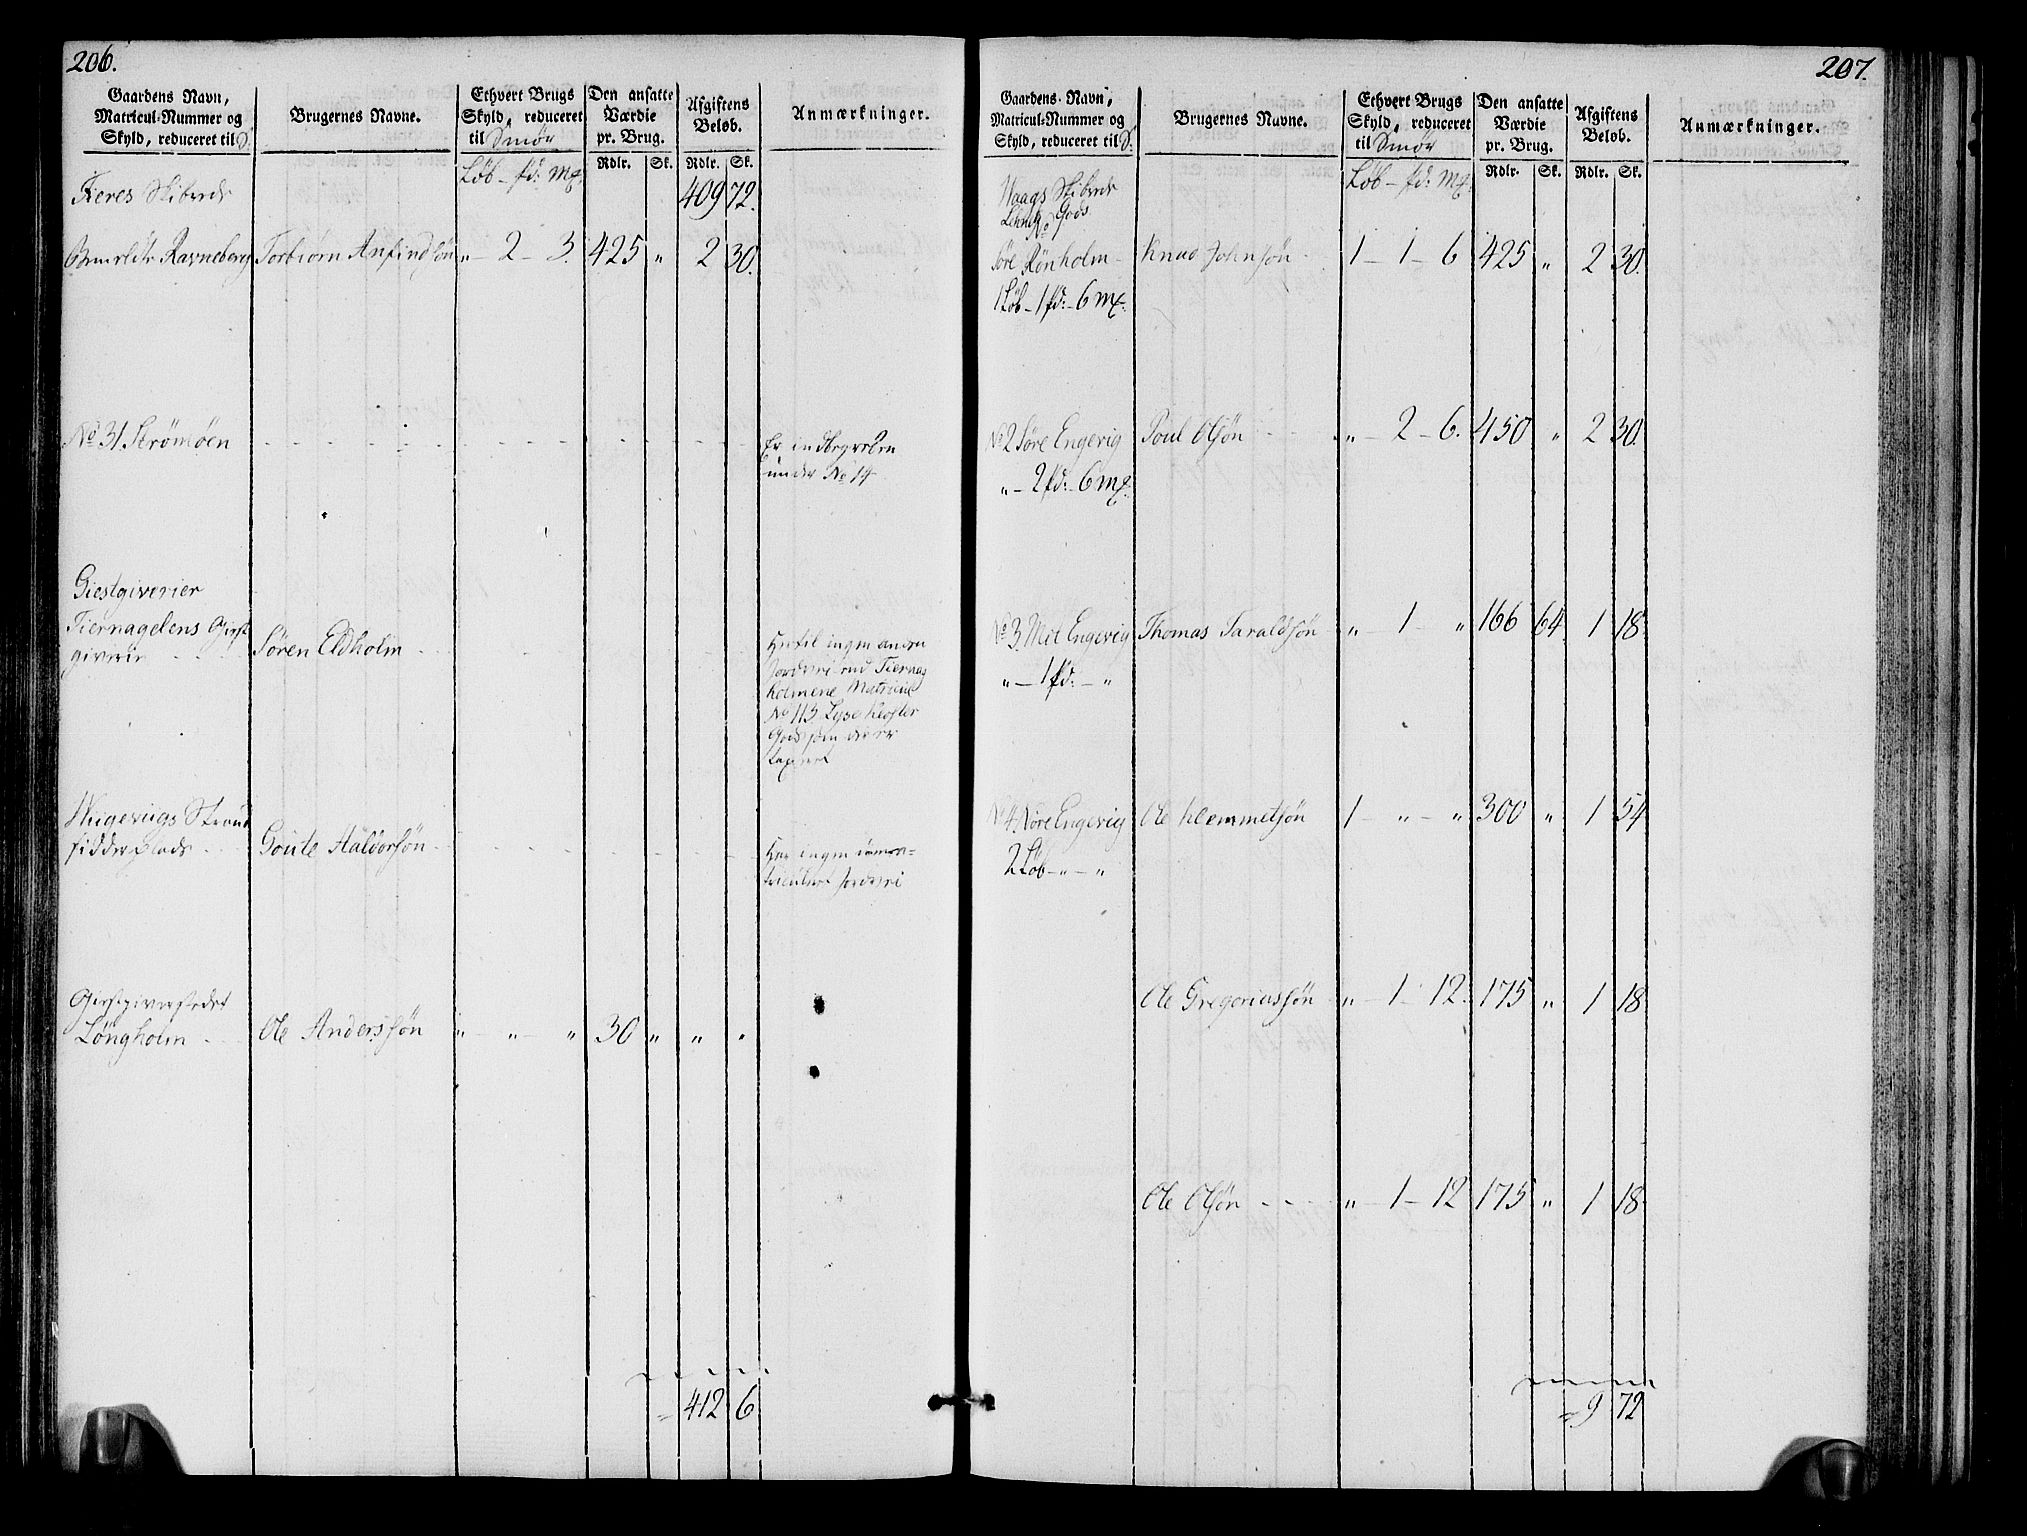 206.
Gaardens Navn, Matricul-Nummer og Skyld, reduceret til S. | Brugernes Navne. | Ethvert Brugs Skyld, reduceret til Smør | Den ansatte Værdie pr. Brug. | Afgiftens Beløb. | Anmærkninger.
Løb - pd: Mk. | Rdlr. | Sk. | Rdlr. | Sk.
Fieres Skibrede | 409 | 72.
Ravneberg | Torbiørn Anfindsøn | „ - 2 - 3. | 425 | „ | 2 | 30.
No 31 Strømøen | Er indbegreben
under No 14
Giestgiverier
Tiernagelens Giest
giverie | Søren Eldholm | Hertil ingen anden
Jordvei end Tiernes
holmene Matricul
No 113 Lyse Kloster
Gods som der er
taxeret
Strand
sidderplads | Goute Haldorsøn | Har ingen uma=
triculeret Jordvei
Giestgiverstedet
Løngholm | Ole Anderssøn | „ „ „ | 30 | „ | „ | „
412 | 6
207.
Gaardens Navn, Matricul-Nummer og Skyld, reduceret til S. | Brugernes Navne. | Ethvert Brugs Skyld, reduceret til Smør | Den ansatte Værdie pr. Brug. | Afgiftens Beløb. | Anmærkninger.
Løb - pd: Mk. | Rdlr. | Sk. | Rdlr. | Sk.
Waags Skibrede
Lehns Gods
No 1
Søre Rønholm | Knud Johnsøn | 1 - 1 - 6 | 425 | „ | 2 | 30.
1 Løb - 1 pd: - 6 Mk.
No 2 Søre Engevig | Poul Olsøn | „ - 2 - 6. | 450 | „ | 2 | 30.
„ - 2 pd: - 6 Mk.
No 3. Mit Engevig | Thomas Taraldsøn | „ - 1 - „ | 166 | 64 | 1 | 18.
„ - 1 pd: - „
No 4 Nore Engevig | Ole Klemmetsøn | 1 - „ - „ | 300 | „ | 1 | 54
2 Løb - „ - „
Ole Gregoriussøn | „ - 1 - 12. | 175 | „ | 1 | 18
Ole Olsøn | „ - 1 - 12 | 175 | „ | 1 | 18.
9 | 72